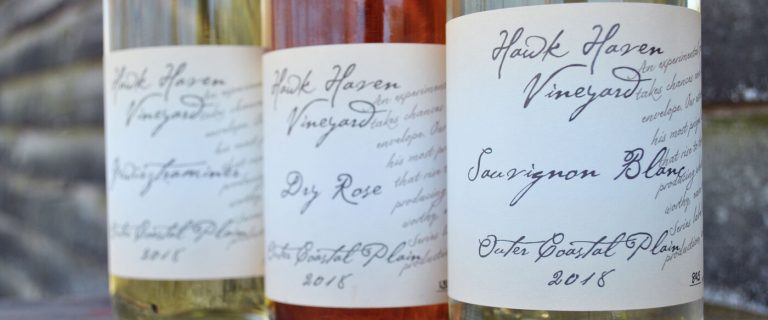 Hawk Haven
Vineyard
Gewürztraminer
Outer Coastal Plain
2018
Hawk Haven
Vineyard
An experimental
takes chances
envelope. Our
his most
that rise to
producing
worthy,
Series
Dry Rose
Outer Coastal Plain
2018
Hawk Haven
Vineyard
An experimental
takes chances
envelope. Our
his most
that rise to
producing
worthy,
Series
production
Sauvignon Blanc
Outer Coastal Plain
2018